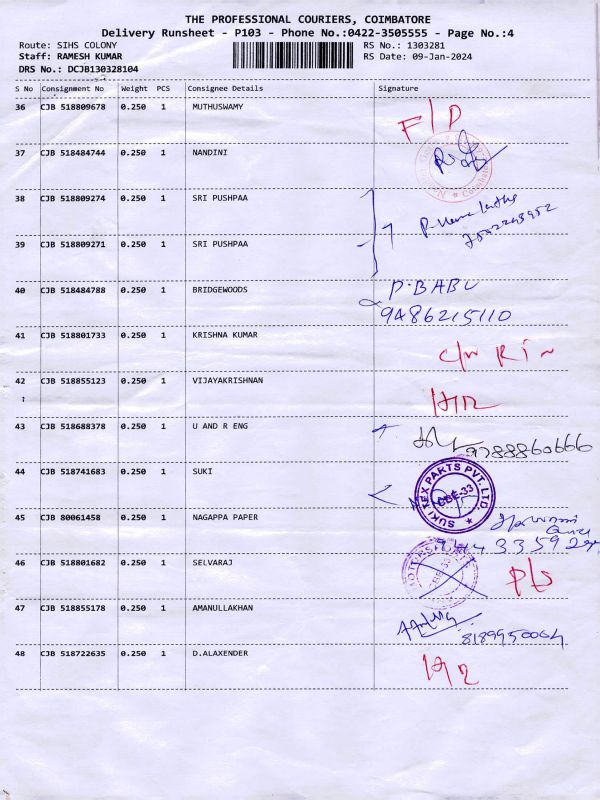 THE PROFESSIONAL COURIERS, COIMBATORE
Delivery Runsheet - P103 - Phone No.:0422-3505555 - Page No.:4
Route: SIHS COLONY RS No.: 1303281
Staff: RAMESH KUMAR RS Date: 09-Jan-2024
DRS No.: DCJB130328104
S No Consignment No Weight PCS Consignee Details Signature
36 CJB 518809678 0.250 1 MUTHUSWAMY F/D
37 CJB 518484744 0.250 1 NANDINI
38 CJB 518809274 0.250 1 SRI PUSHPAA
39 CJB 518809271 0.250 1 SRI PUSHPAA
40 CJB 518484788 0.250 1 BRIDGEWOODS P.BABU
9486215110
41 CJB 518801733 0.250 1 KRISHNA KUMAR
42 CJB 518855123 0.250 1 VIJAYAKRISHNAN
43 CJB 518688378 0.250 1 U AND R ENG 9788860666
44 CJB 518741683 0.250 1 SUKI SUKI TEX PAKTS PVT. LTD. CBE-33
45 CJB 80061458 0.250 1 NAGAPPA PAPER
46 CJB 518801682 0.250 1 SELVARAJ
47 CJB 518855178 0.250 1 AMANULLAKHAN 8189950064
48 CJB 518722635 0.250 1 D.ALAXENDER